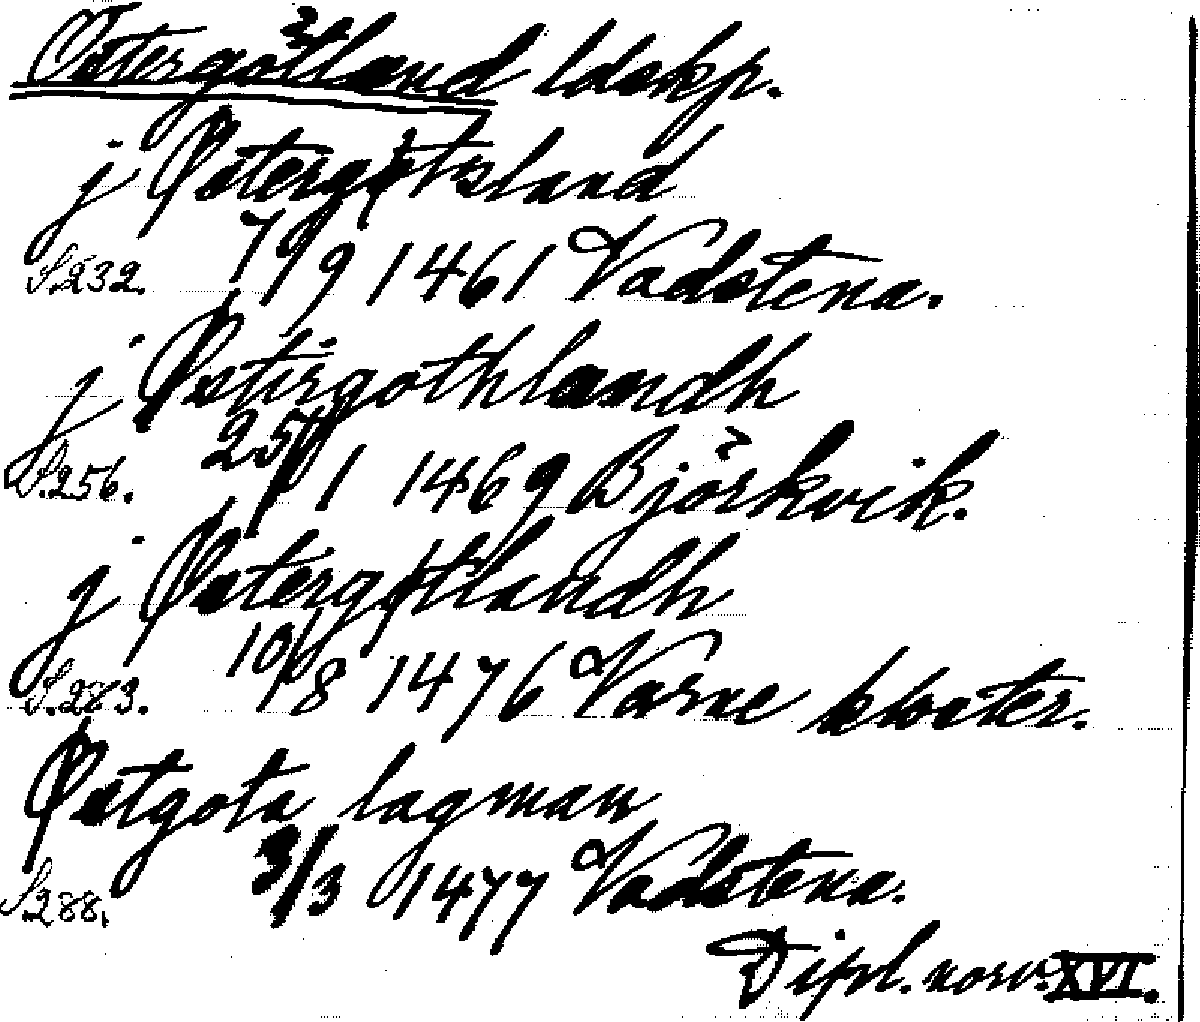 Östergötland ldskp.
j Østergøtsland
S.232. 19/9 1461 Vadstena.
j Østirgothlandh
S.256. 25/1 1469 Björkvik.
j Østergøtlandh
S.283. 10/8 1476 Varne kloster.
Østgota lagman
S.288. 3/3 1477 Vadstena.
Dipl. norv. XVI.